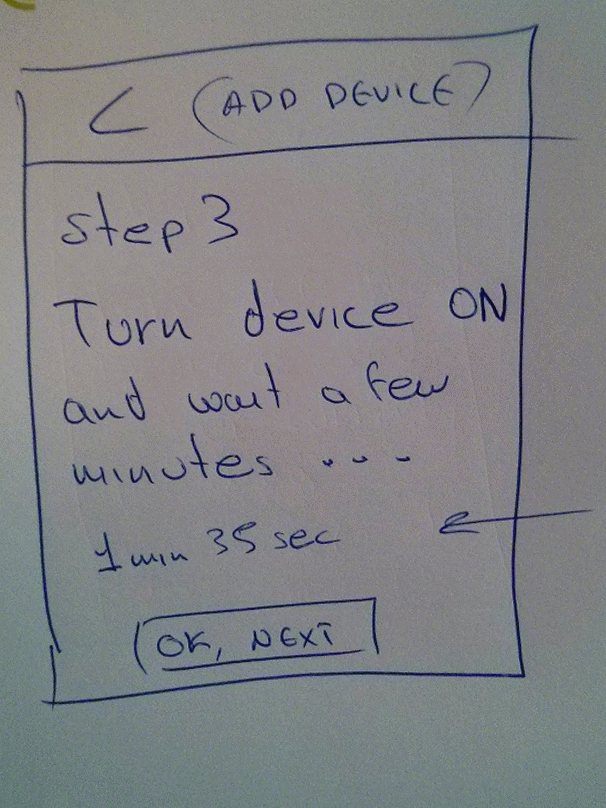 < (ADD DEVICE)
step 3
Turn device ON
and wait a few
minutes ...
1 min 35 sec
OK, NEXT